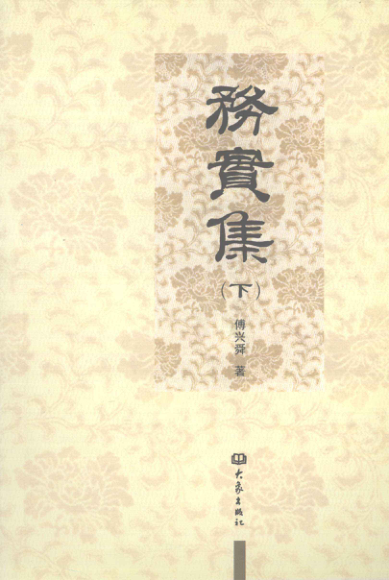 務實集
（下）
傅兴舜 著
大象出版社